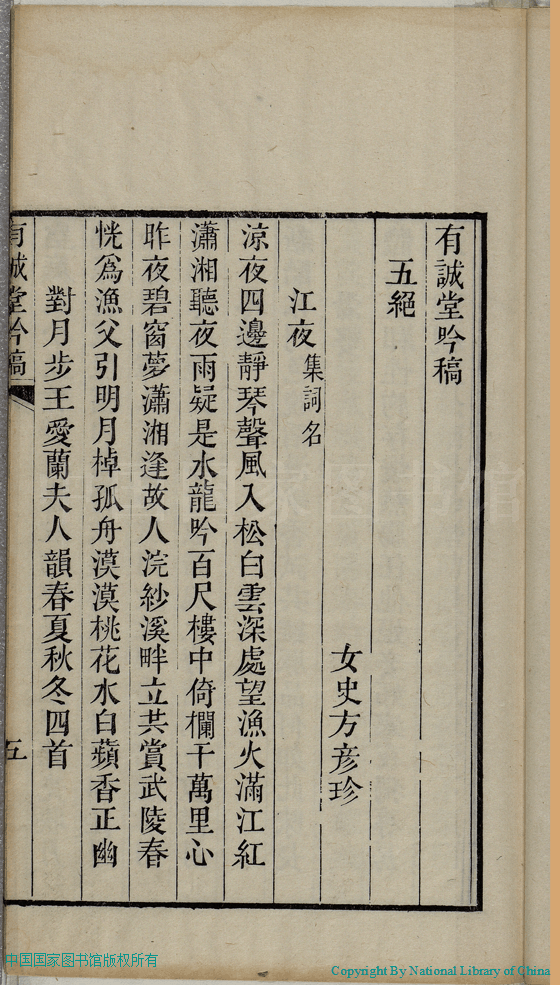 有誠堂吟稿
五絕
女史方彦珍
江夜集詞名
涼夜四邊靜琴聲風入松白雲深處望漁火滿江紅
瀟湘聽夜雨疑是水龍吟百尺樓中倚欄干萬里心
昨夜碧窗夢瀟湘逢故人浣紗溪畔立共賞武陵春
恍爲漁父引明月棹孤舟漠漠桃花水白蘋香正幽
對月步王愛蘭夫人韻春夏秋冬四首
有誠堂吟稿
五
中国国家图书馆版权所有
Copyright By National Library of China